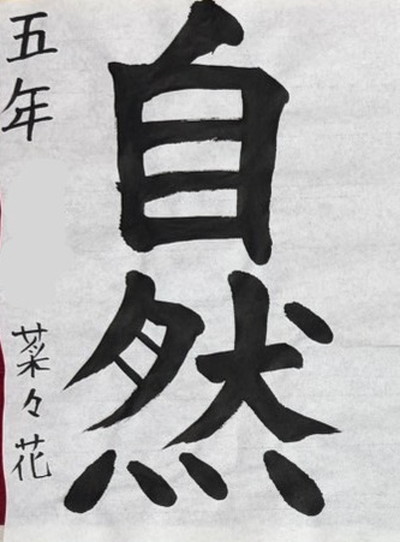 自然
五年
菜々花